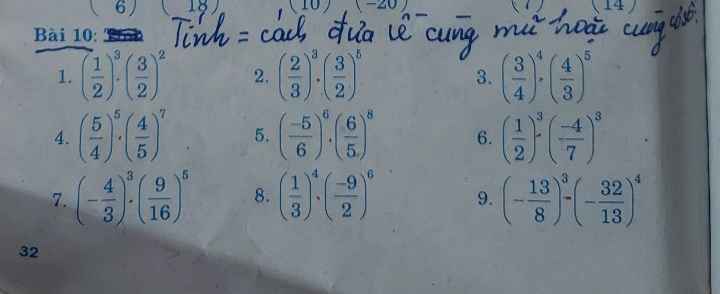 (6) (18) (10) (-20) (7) (14)
Bài 10: Tính = cách đưa về cùng mũ hoặc cùng cơ số.
1. (1/2)³.(3/2)² 2. (2/3)³.(3/2)⁵ 3. (3/4)⁴.(4/3)⁵
4. (5/4)⁵.(4/5)⁷ 5. (-5/6)⁶.(6/5)⁸ 6. (1/2)³.(-4/7)³
7. (-4/3)³.(9/16)⁵ 8. (1/3)⁴.(-9/2)⁶ 9. (-13/8)³.(-32/13)⁴
32